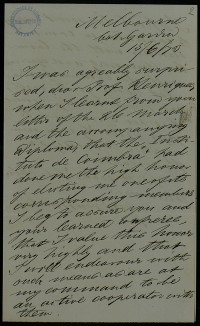 Melbourne
bot. Garden
15/6/78
I was agreably surpri-
sed, dear Prof. Henriques
when I learnt from your
letter of the 26 March
and the accompanying
Diploma, that the "Insti-
tuto de Coimbra" had
done me the high honor
of electing me one of its
corresponding members.
I beg to assure you and
your learned confreres,
that I value this honor
very highly and that
I will endeavour with
such means as are at
my command to be
an active cooperator with
them.